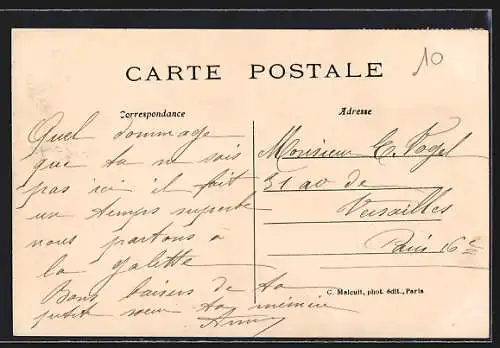 10
CARTE POSTALE
Correspondance
Adresse
Quel dommage
que ta ne sois
pas ici il fait
un temps superbe
nous partons à
la galette
Bons baisers de ta
petite soeur
Monsieur E. Vogel
51 av de
Versailles
Paris 16e
C. Malcuit, phot. édit., Paris